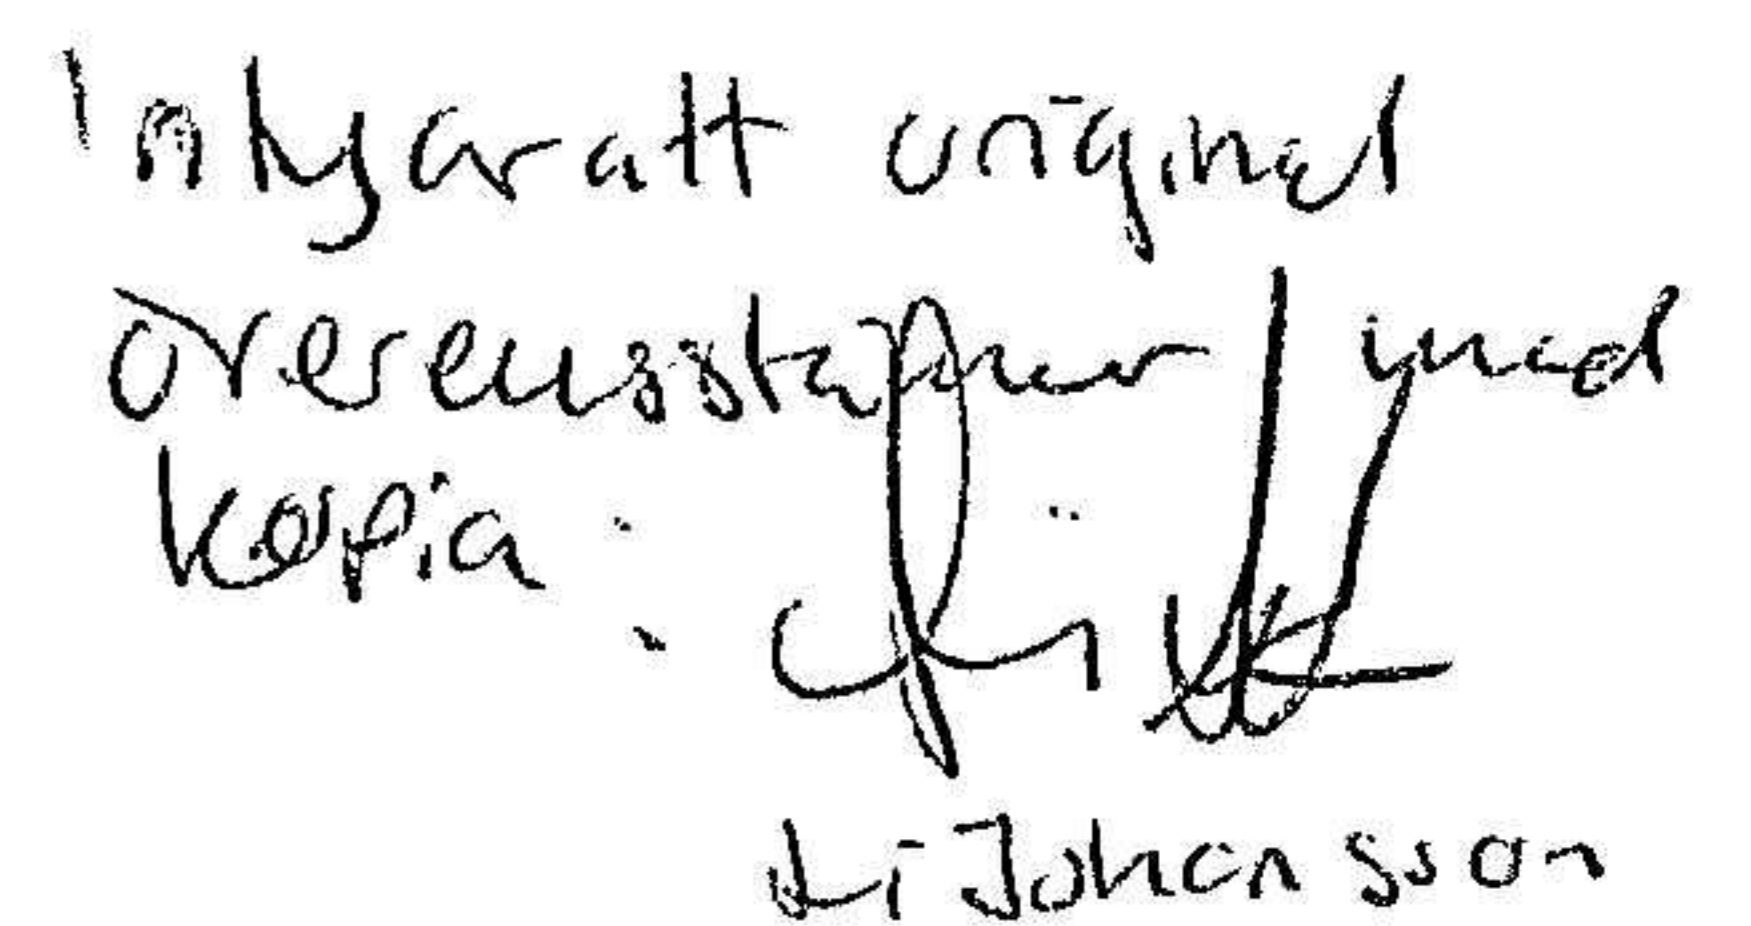 Intygar att original
överensstämer med
kopia :
Li Johansson